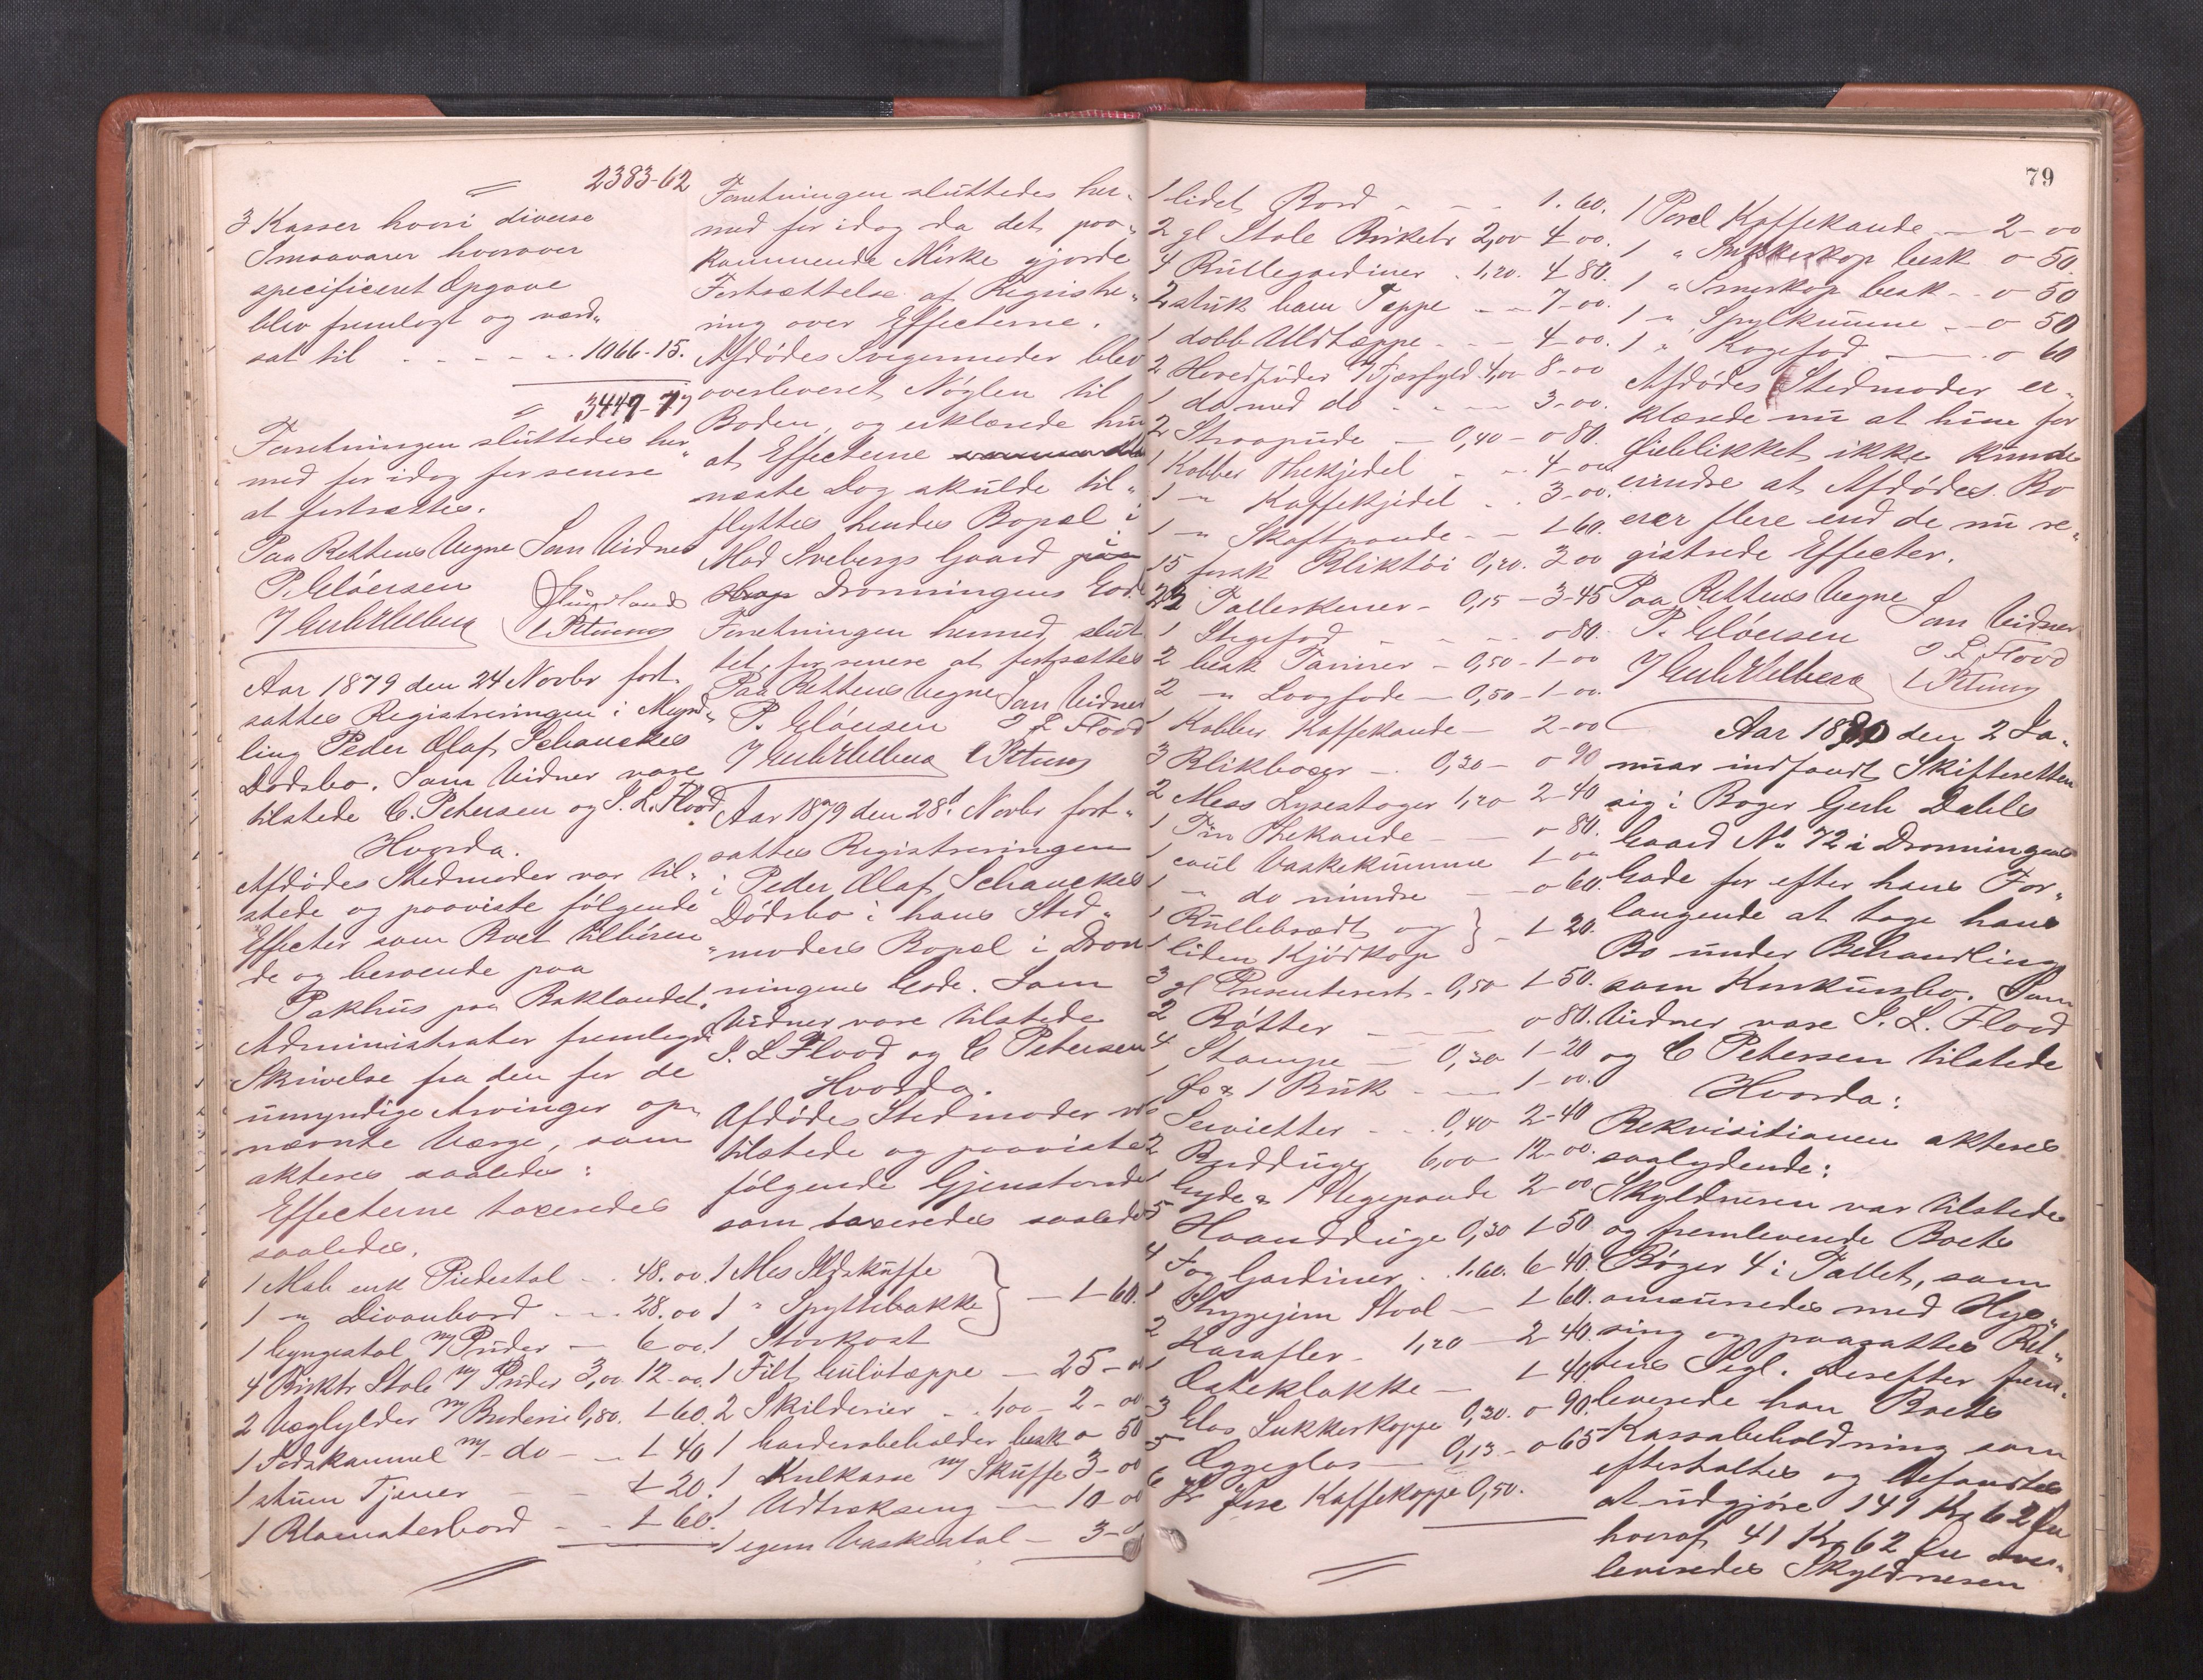 2383-62
3 Kasser hvori diverse
Smaavarer hvorover
specificeret Opgave
blev fremlagt og værd-
sat til - - - - 1066-15.
3449-77
Forretningen sluttedes her-
med for idag for senere
at fortsættes.
Paa Rettens Vegne Som Vidner
P. Clöersen
C Petersen
Aar 1879 den 24 Novbr fort-
sattes Registreringen i Mynd-
ling Peder Olaf Schanckes
Dødsbo. Som Vidner vare
tilstede C. Petersen og J. L. Flood
Hvorda.
Afdødes Stedmoder var til-
stede og paaviste følgende
Effecter som Boet tilhøren-
de og beroende paa
Pakhus paa Baklandet.
Administrator fremlagde
Skrivelse fra den for de
umyndige Arvinger op-
nævnte Værge, som
akteres saaledes:
Effecterne taxeredes
saaledes.
1 Mah enk Piedestal - . 48.00
1 " Divanbord - - - 28.00
1 Gyngestol m/ Puder - 6 00
4 Birktr Stole m/ Puder 3,00 12-00
2 Væghylder m/ Broderi 0,80. 1-60.
1 Fodskammel m/ do - - 1-40
1 stum Tjener - - 1-20.
1 Blomsterbord - - 1-60.
Forretningen sluttedes her-
med for idag da det paa-
kommende Mørke gjorde
Fortsættelse af Registre-
ring over Effecterne.
Afdødes Svigermoder blev
overleveret Nøglen til
Boden, og erklærede hun
at Effecterne
næste Dag skulde til-
flyttes hendes Bopæl i
Mad Svebergs Gaard
Dronningens Gade
Forretningen hermed slut-
tet, for senere at fortsættes
Paa Rettens Vegne Som Vidner
P. Clöersen J L Flood
C Petersen
Aar 1879 den 28d Novbr fort-
sattes Registreringen
i Peder Olaf Schanckes
Dødsbo i hans Sted-
moders Bopæl i Dron-
ningens Gade. Som
Vidner vare tilstede
J. L Flood og C Petersen
Hvorda.
Afdødes Stedmoder var
tilstede og paaviste
følgende Gjenstande
som taxeredes saaledes
1 Mes Ildskuffe
1 " Spyttebakke } - 1-60.
1 Stovkost
1 Filt Gulvtæppe - 25-00
2 Skilderier - . 1,00 - 2-00
1 Garderobeholder besk 0 50
1 Kulkasse m/ Skuffe 3-00
1 Udtrækseng - 10-00
1 egem Vaskestol - 3-
79
1 lidet Bord - - - 1. 60.
2 gl Stole Birketr 2,00 4 00.
4 Rullegardiner . 1,20. 4 80.
2 stuk ham Tæppe - - 7-00.
1 dobb Uldtæppe - - - 4-00.
2 Hovedpuder m/ Fjærfyld. 4,00 8-00
1 do med do - - - 3-00.
2 Straapude - 0,40 - 0 80.
1 Kobber Thekjedel - - 4-00
1 " Kaffekjedel . . 3-00.
1 " Skaftpande - - 1-60.
15 forsk Bliktøi 0,20. 3 00
23 Tallerkener - 0,15 - 3-45
1 Stegefad - - - - 0 80.
2 besk Tariner - 0,50 - 1-00
2 " Laagfade - 0,50 - 1-00.
1 Kobber Kaffekande - 2-00
3 Blikboxer - . 0,30 - 0 90
2 Mess Lysestager 1,20 2-40
1 Tin Thekande - - 0 80.
1 eaml Vaskekumme 1-00
1 " do mindre - - 0 60.
1 Rullebrædt og
1 liden Kjødkop } - 1-20.
3 gl Presenterbr - 0,50 1-50.
2 Bøtter - - 0 80.
4 Stampe - 0,30 1-20
1 " 1 Buk - - 1-00.
6 Servietter - - 0,40 2-40
2 Bordduge 6,00 12-00.
1 Gryde & 1 Stegepande 2-00
5 Haandduge 0,30 1-50
4 Fag Gardiner . 1,60. 6 40.
1 Strygejern Staal - 1-60.
2 Karafler - 1,20 - 2 40.
1 Osteklokke - 1-40
3 Glas Sukkerkoppe 0,30. 0 90.
5 Æggeglas - 0,13 - 0 65
6 Pr Kaffekoppe 0,50.
1 Porcl Kaffekande - 2-00
1 " Sukkerkop besk 0-50
1 " Smørkop besk - - 0 50
1 " Spylkumme - - 0 50
1 " Kagefad - - 0 60
Afdødes Stedmoder er-
klærede nu at hun for
Øieblikket ikke kunde
erindre at Afdødes Bo
eier flere end de nu re-
gistrede Effecter.
Paa Rettens Vegne
P. Clöersen
Som Vidner
J L Flood
C Petersen
Aar 1880 den 2 Ja-
nuar indfandt Skifteretten
sig i Boger Gerh Dahls
Gaard No 72 i Dronningens
Gade for efter hans For-
langende at tage hans
Bo under Behandling
som Konkursbo. Som
Vidner vare J. L. Flood
og C Petersen tilstede
Hvorda:
Rekvisitionen akteres
saalydende:
Skyldneren var tilstede
og fremleverede Boets
Bøger 4 i Tallet, som
omsnøredes med Hys-
sing og paasattes Ret-
tens Segl. Derefter frem-
leverede han Boets
Kassabeholdning som
eftertaltes og befandtes
at udgjøre 141 Kr 62 Øre
hvoraf 41 Kr 62 Øre over-
leveredes Skyldneren